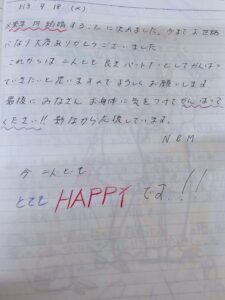 H3 9.18 (火)
結婚することに決めました。今までお世話
になり大変ありがとうございました。
これからは二人とも良きパートナーとしてがんばっ
ていきたいと思いますのでよろしくお願いします
最後にみなさんお身体に気をつけてがんばって
ください!! 影ながら応援しています。
N B M
今 二人とも
とても HAPPY です!!